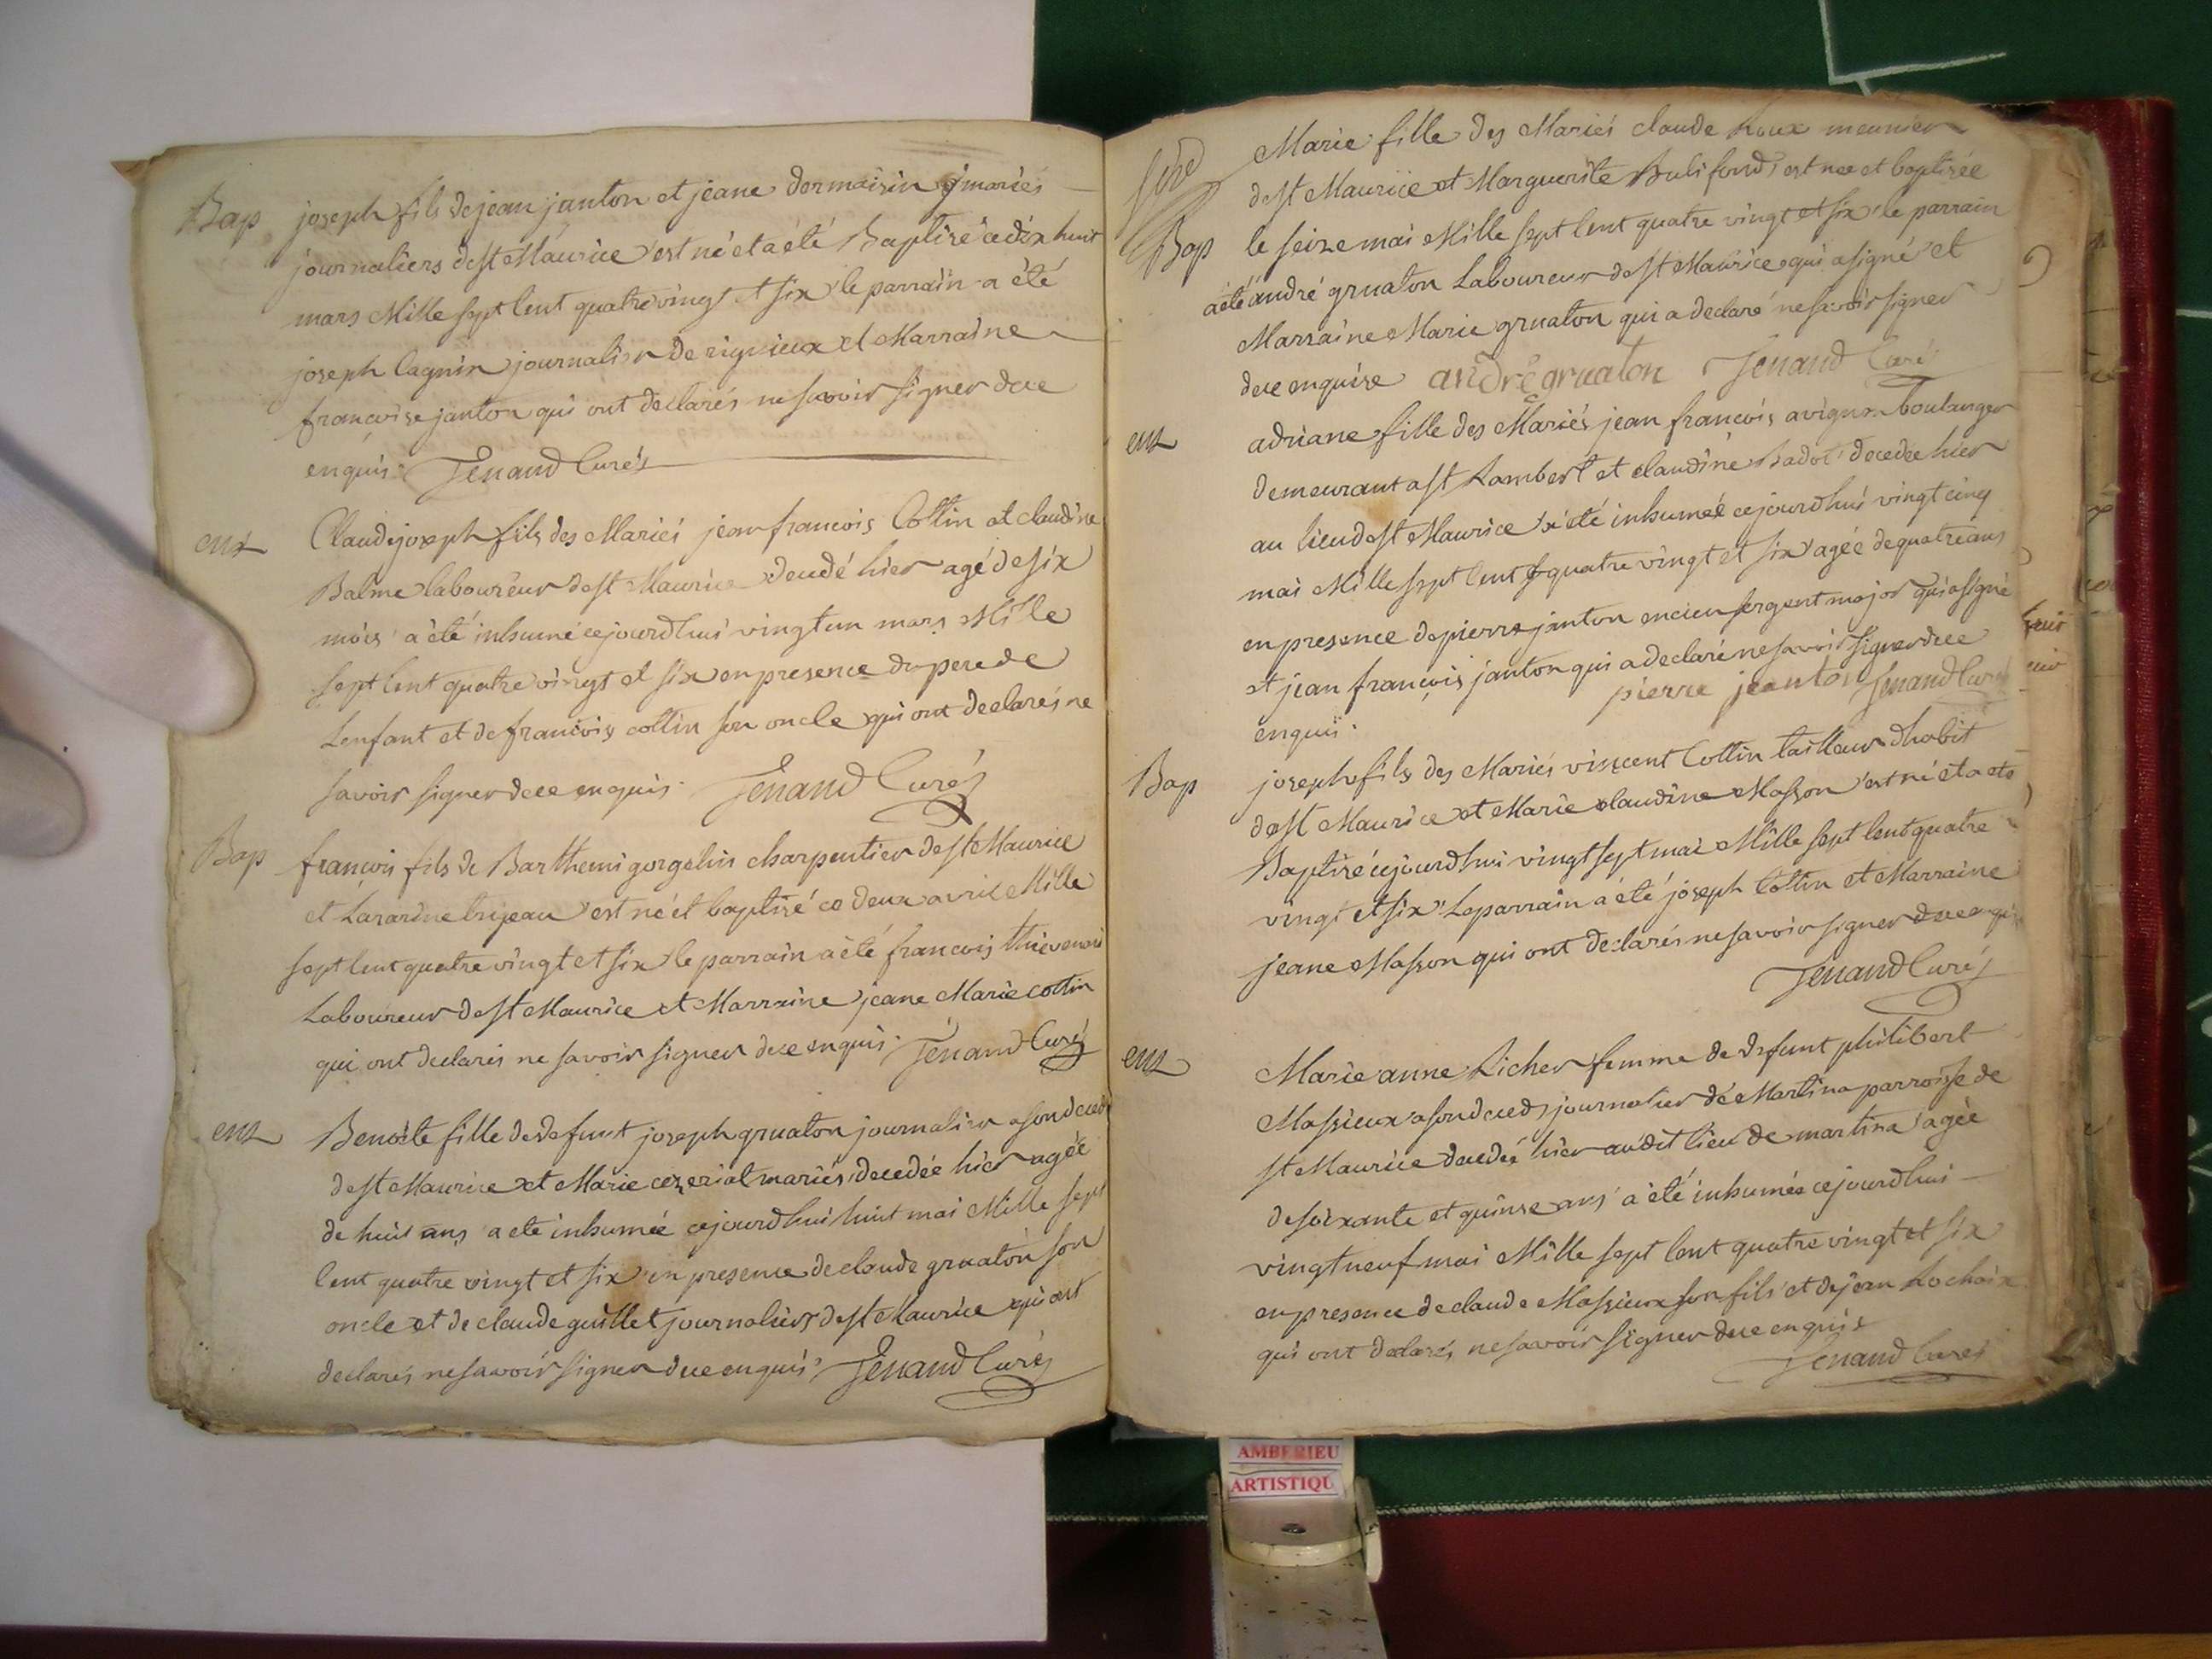 Bap joseph fils de jean janton et jeane dormaisin mariés
journaliers de st Maurice est né et a été Baptisé ce dix huit
mars Mille sept Cent quatre vingt et six le parrain a été
joseph Cagnin journalier de rignieux et Marraine
francoise janton qui ont declarés ne savoir signer de ce
enquis. Jenand Curé
ent Claude joseph fils des Mariés jean francois Collin et claudine
Balme laboureur de st Maurice decedé hier agé de six
mois a été inhumé cejourdhui vingt un mars Mille
sept Cent quatre vingt et six en presence du pere de
Lenfant et de francois collin son oncle qui ont declarés ne
savoir signer de ce enquis. Jenand Curé
Bap francois fils de Barthemi gorgelin charpentier de st Maurice
et Lazarine est né et baptisé ce deux avril Mille
sept Cent quatre vingt et six le parrain a été francois thievenard
Laboureur de st Maurice et Marraine jeane Marie collin
qui ont declarés ne savoir signer de ce enquis. Jenand Curé
ent Benoite fille de defunt joseph gruaton journalier a son deced
de st Maurice et Marie cezeriat mariés decedée hier agée
de huit ans a eté inhumée cejourdhui huit mai Mille sept
Cent quatre vingt et six en presence de claude gruaton son
oncle et de claude guillet journaliers de st Maurice qui ont
declarés ne savoir signer de ce enquis. Jenand Curé
Marie fille des Mariés claude Roux meunier
de st Maurice et Marguerite est née et baptisée
Bap le seize mai Mille sept Cent quatre vingt et six le parrain
a été andré gruaton Laboureur de st Maurice qui a signé et
Marraine Marie gruaton qui a declaré ne savoir signer
de ce enquise andré gruaton Jenand Curé
ent adriane fille des Mariés jean francois avignon boulanger
demeurant a st Rambert et claudine Badot decedee hier
au lieu de st Maurice a été inhumée cejourdhui vingt cinq
mai Mille sept Cent quatre vingt et six agée de quatre ans
en presence de pierre janton encien sergent major qui a signé
et jean francois janton qui a declaré ne savoir signer de ce
enquis. pierre jeanton Jenand Curé
Bap joseph fils des Mariés vincent Collin tailleur dhabit
de st Maurice et Marie claudine Masson est né et a eté
Baptisé cejourdhui vingt sept mai Mille sept Cent quatre
vingt et six Le parrain a été joseph Collin et Marraine
jeane Masson qui ont declarés ne savoir signer de ce enquis
Jenand Curé
ent Marie anne Richer femme de defunt philibert
Massieux a son deced journalier de Martina parroisse de
st Maurice decedée hier audit lieu de martina agée
de soixante et quinse ans a été inhumée cejourdhui
vingt neuf mai Mille sept Cent quatre vingt et six
en presence de claude Massieux son fils et de jean Rochaix
qui ont declarés ne savoir signer de ce enquis
Jenand Curé
AMBERIEU
ARTISTIQU